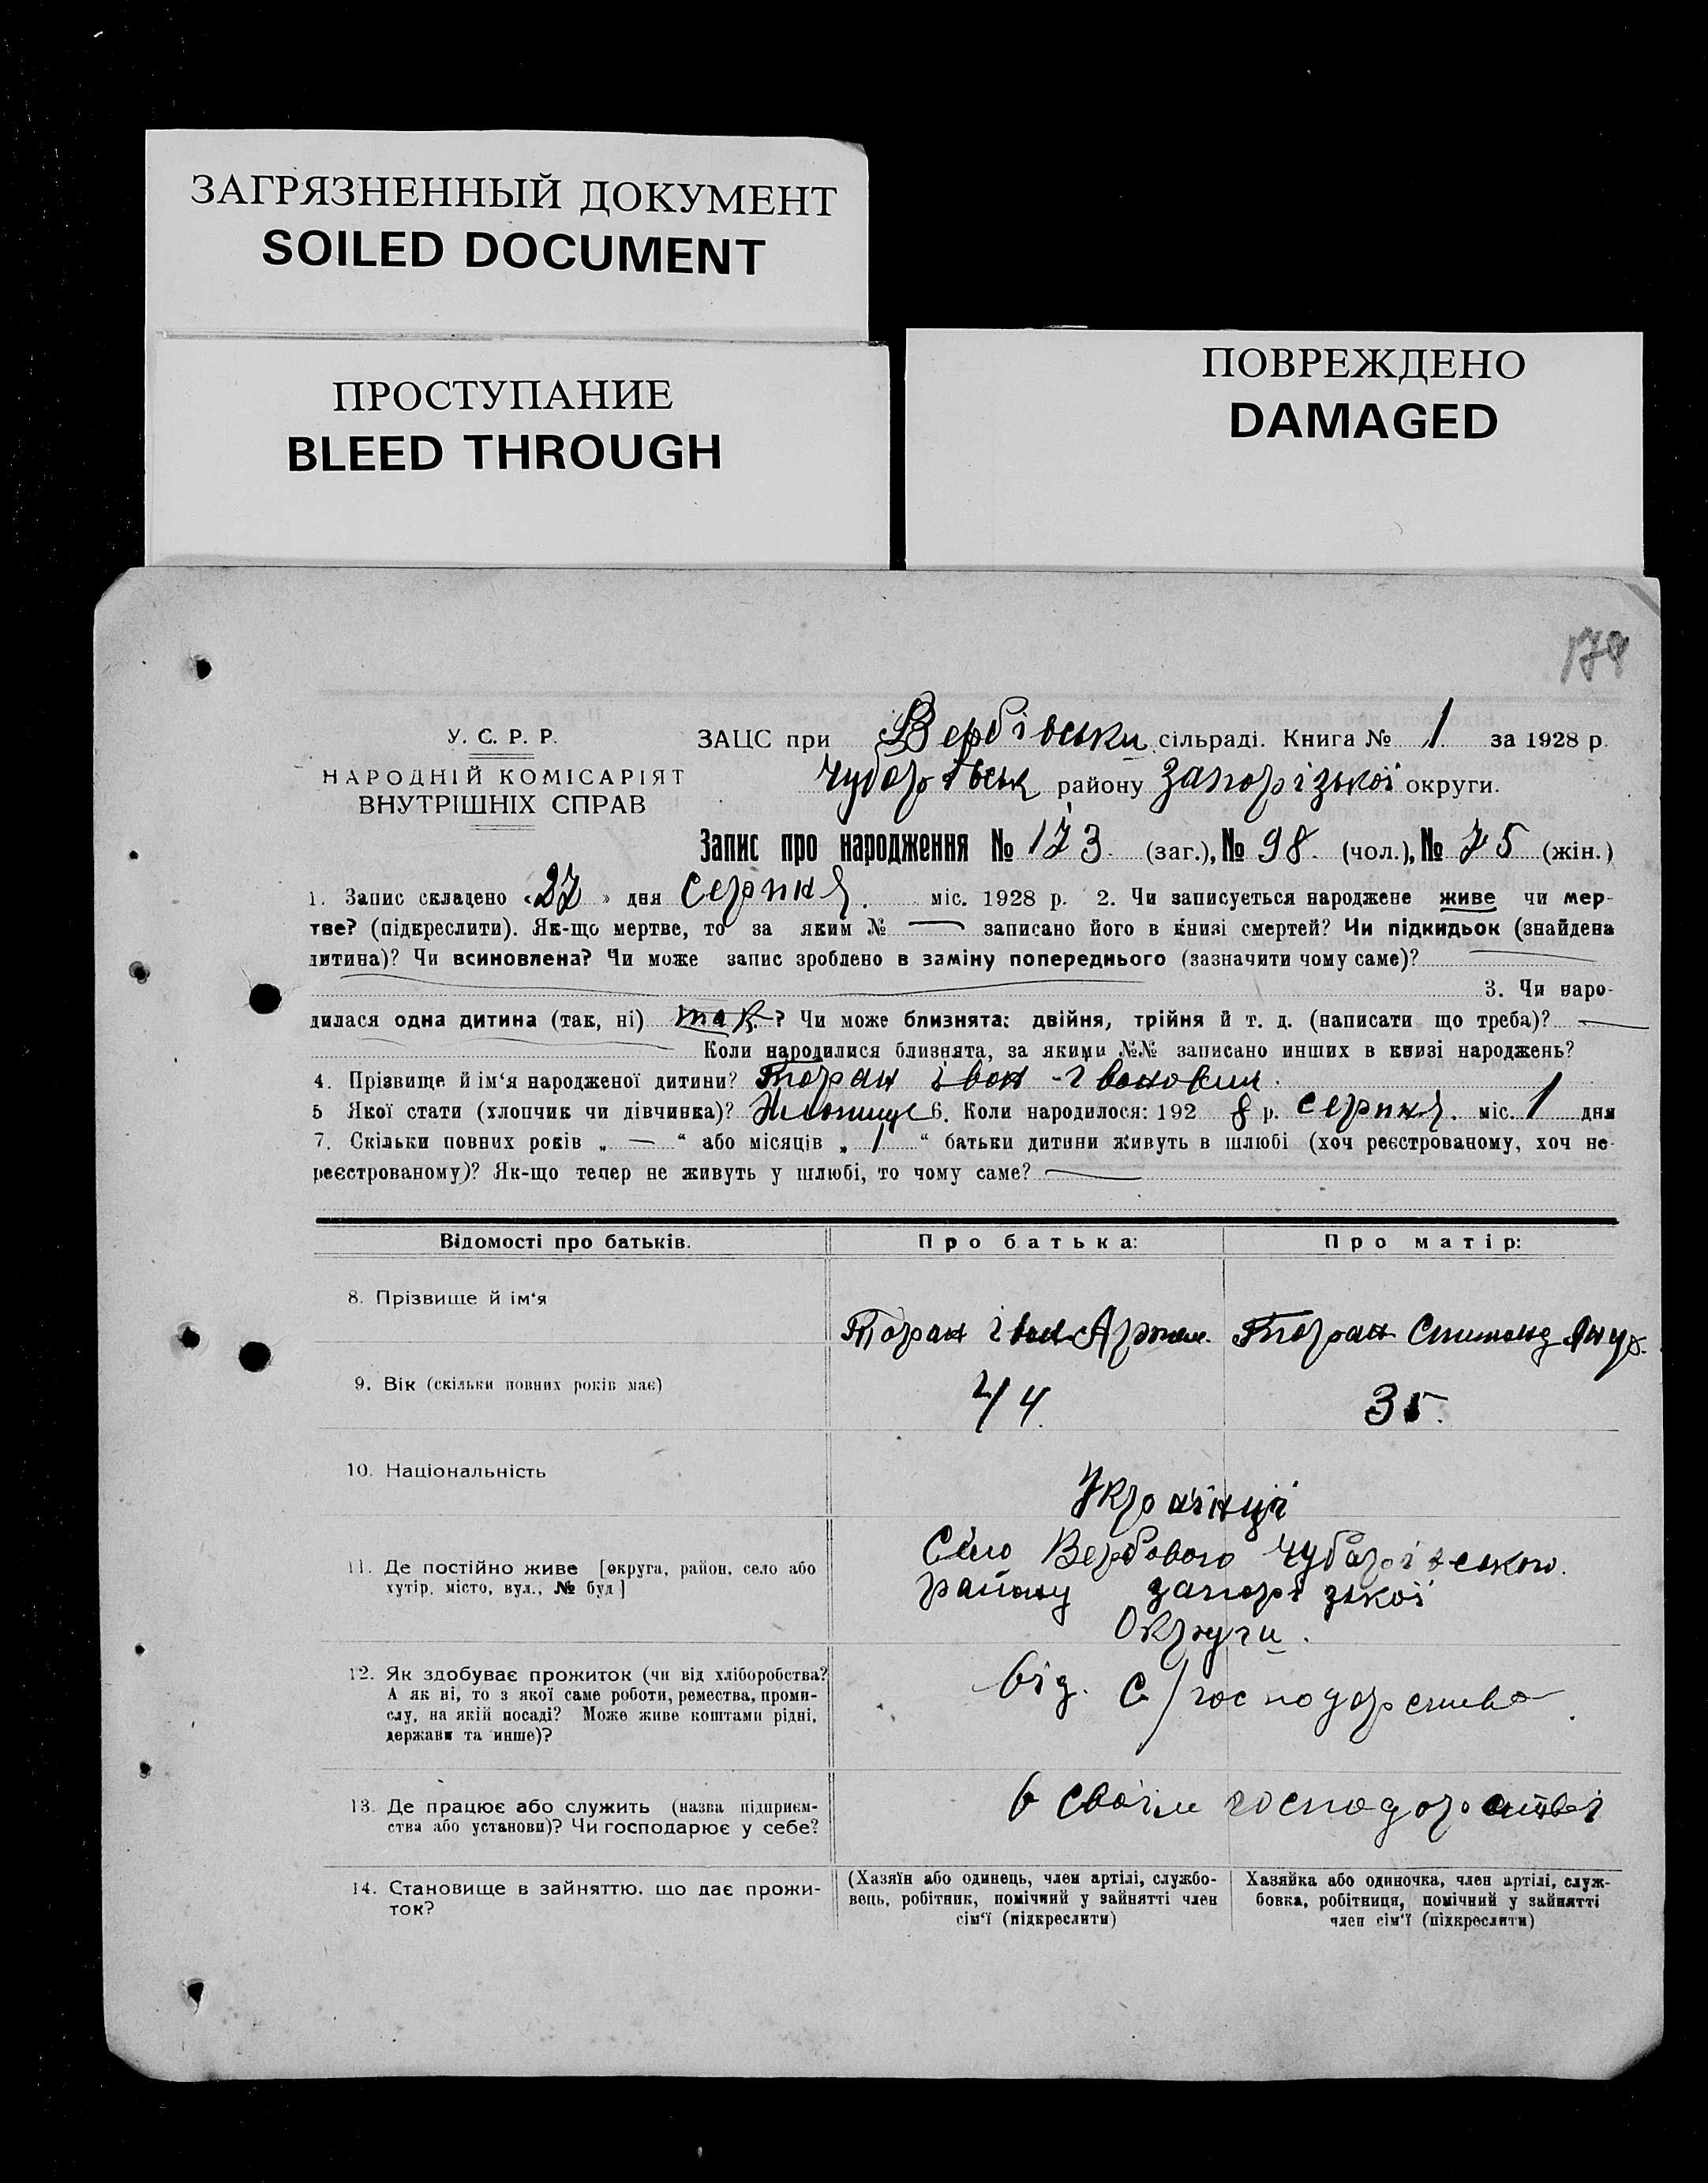 ЗАГРЯЗНЕННЫЙ ДОКУМЕНТ
SOILED DOCUMENT
ПРОСТУПАНИЕ
BLEED THROUGH
ПОВРЕЖДЕНО
DAMAGED
У. С. Р. Р.
НАРОДНІЙ КОМІСАРІЯТ
ВНУТРІШНІХ СПРАВ
ЗАЦС при Вербівськи сільраді. Книга № 1 за 1928 р.
Чубарівськ району Запорізької округи.
Запис про народження № 173. (заг.), № 98. (чол.), № 75 (жін.)
1. Запис складено «27» дня серпня. міс. 1928 р. 2. Чи записується народжене живе чи мер-
тве? (підкреслити). Як-що мертве, то за яким № — записано його в книзі смертей? Чи підкидьок (знайдена
дитина)? Чи всиновлена? Чи може запис зроблено в заміну попереднього (зазначити чому саме)?
3. Чи наро-
дилася одна дитина (так, ні) так? Чи може близнята: двійня, трійня й т. д. (написати що треба)? —
Коли народилися близнята, за якими №№ записано инших в книзі народжень?
4. Прізвище й ім'я народженої дитини? Торан Іван Іванович.
5 Якої стати (хлопчик чи дівчинка)? 6. Коли народилося: 1928 р. серпня. міс. 1 дня
7. Скільки повних років „ — “ або місяців „ 1 “ батьки дитини живуть в шлюбі (хоч реєстрованому, хоч не-
реєстрованому)? Як-що тепер не живуть у шлюбі, то чому саме? —
Відомості про батьків. Про батька: Про матір:
8. Прізвище й ім'я
Торан Іван Торан
9. Вік (скільки повних років має) 44. 35.
10. Національність
Українці
11. Де постійно живе [округа, район, село або
хутір, місто, вул., № буд]
Село Вербового Чубарівського
району Запорізької
Округи.
12. Як здобуває прожиток (чи від хліборобства?
А як ні, то з якої саме роботи, ремества, проми-
слу, на якій посаді? Може живе коштами рідні,
держави та инше)?
від. с/господарства.
13. Де працює або служить (назва підприєм-
ства або установи)? Чи господарює у себе?
в своїм господарстві
14. Становище в зайняттю, що дає прожи-
ток?
(Хазяїн або одинець, член артілі, службо-
вець, робітник, помічний у зайнятті член
сім'ї (підкреслити)
Хазяйка або одиночка, член артілі, служ-
бовка, робітниця, помічний у зайнятті
член сім'ї (підкреслити)